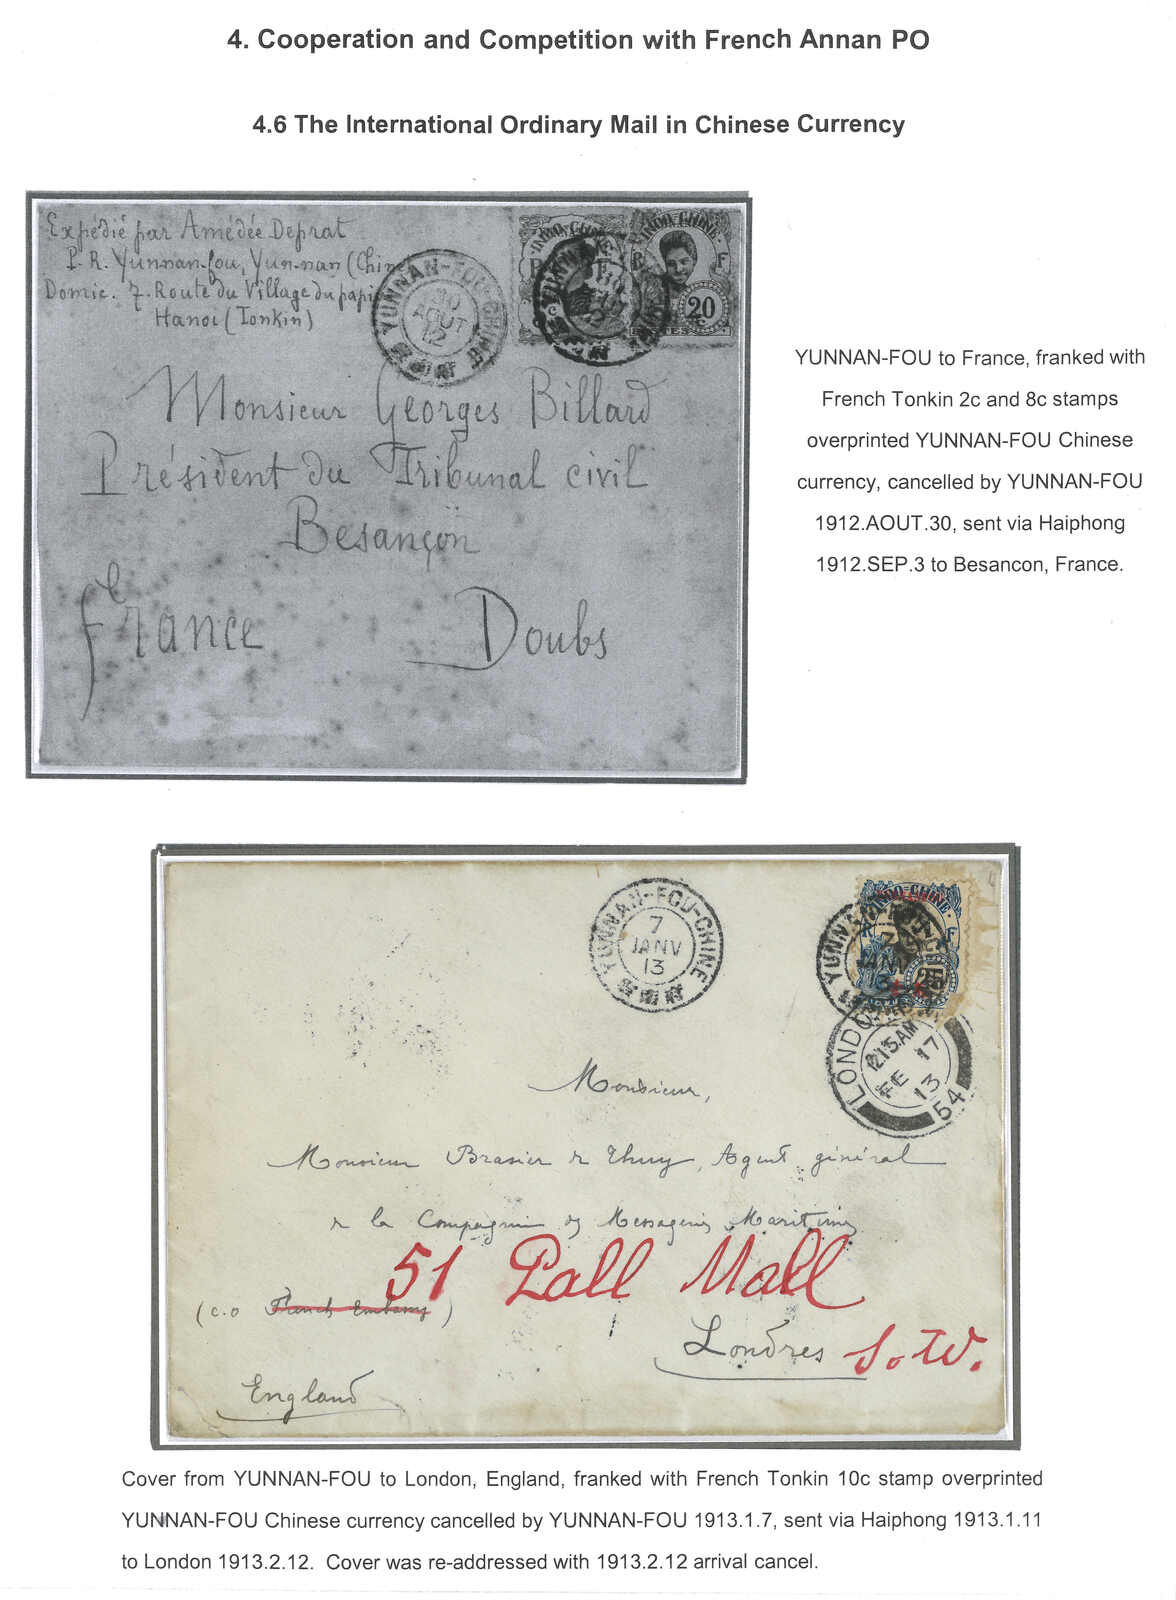 4. Cooperation and Competition with French Annan PO
4.6 The International Ordinary Mail in Chinese Currency
Expédié par Amédée Deprat
P. R. Yunnan-fou, Yun-nan (Chin
Domic. 7. Route du Village du papi
Hanoi (Tonkin)
YUNNAN-FOU-CHINE
30
AOUT
12
INDO-CHINE
INDO-CHINE
R F
20
Monsieur Georges Billard
Président du Tribunal civil
Besançon
France Doubs
YUNNAN-FOU to France, franked with
French Tonkin 2c and 8c stamps
overprinted YUNNAN-FOU Chinese
currency, cancelled by YUNNAN-FOU
1912.AOUT.30, sent via Haiphong
1912.SEP.3 to Besancon, France.
YUNNAN-FOU-CHINE
7
JANV
13
雲南府
INDO-CHINE
F
25
LONDON
12.15.AM
FE 17
13
54
Monsieur,
Monsieur Brasier de Thuy, Agent général
de la Compagnie des Messageries Maritimes
51 Pall Mall
(c.o French Embassy)
Londres S.W.
England
Cover from YUNNAN-FOU to London, England, franked with French Tonkin 10c stamp overprinted
YUNNAN-FOU Chinese currency cancelled by YUNNAN-FOU 1913.1.7, sent via Haiphong 1913.1.11
to London 1913.2.12. Cover was re-addressed with 1913.2.12 arrival cancel.